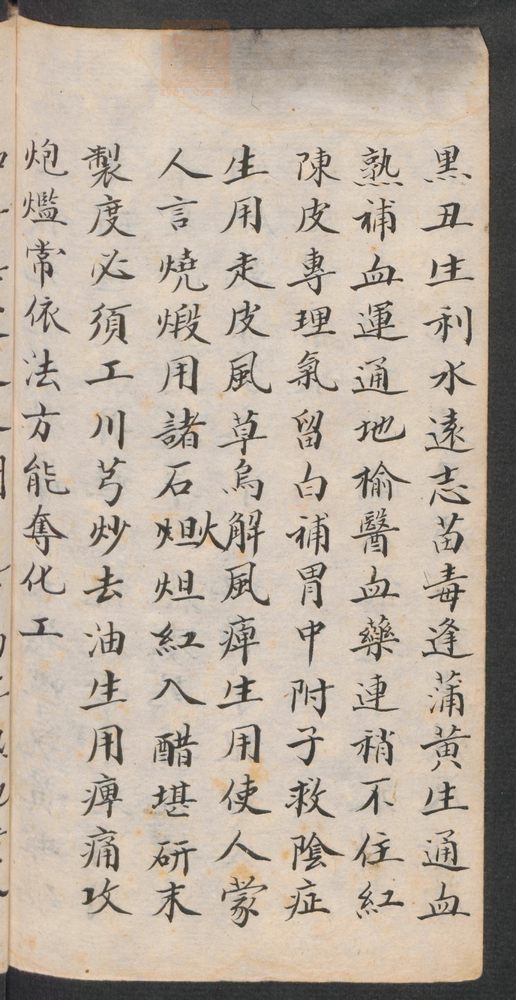 黑丑生利水遠志苗毒逢蒲黄生通血
熟補血運通地榆醫血藥連稍不住紅
陳皮專理氣留白補胃中附子救陰症
生用走皮風草烏解風痺生用使人蒙
人言燒煅用諸石炟火炟紅入醋堪研末
製度必須工川芎炒去油生用痺痛攻
炮爁常依法方能奪化工